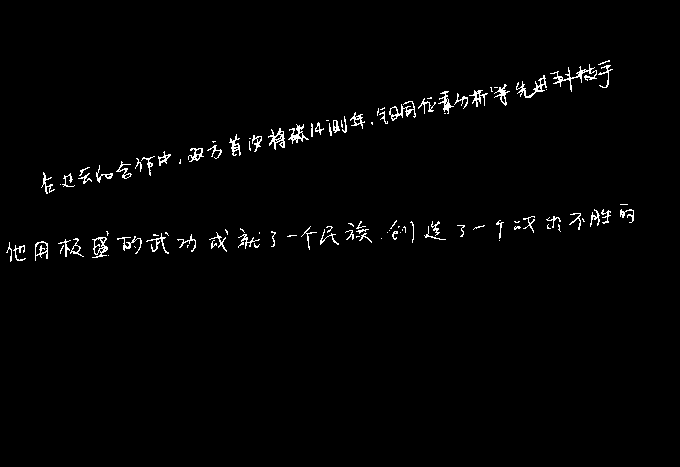 在过去的合作中，双方首次将碳14测年，铅同位素分析等先进科技手
他用极盛的武功成就了一个民族，创造了一个战出不胜的